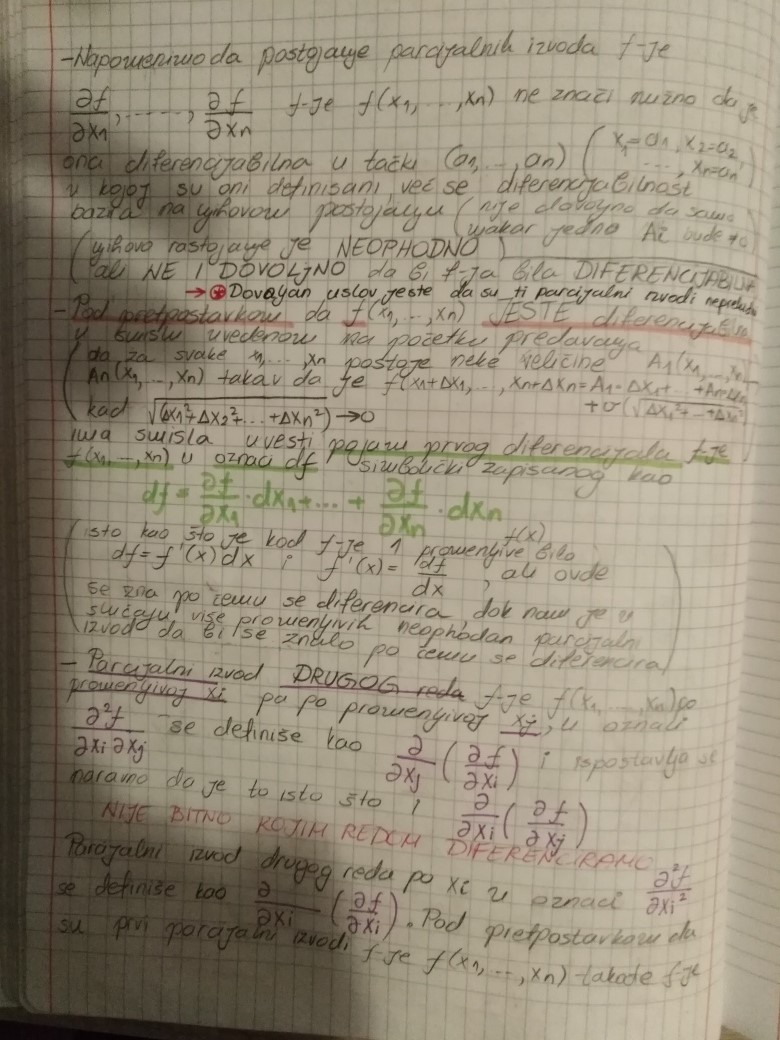 -Napomenimo da postojanje parcijalnih izvoda f-je
∂f/∂x1, ....., ∂f/∂xn f-je f(x1, ..., xn) ne znači nužno da je
ona diferencijabilna u tački (a1, ..., an) (x1=a1, x2=a2, ..., xn=an)
u kojoj su oni definisani, već se diferencijabilnost
bazira na njihovom postojanju (nije dovoljno da samo
makar jedno Ai bude ≠0
(njihovo postojanje je NEOPHODNO)
ali NE I DOVOLJNO da bi f-ja bila DIFERENCIJABILNA
→ ⊛ Dovoljan uslov jeste da su ti parcijalni izvodi neprekidni
- Pod pretpostavkom da f(x1, ..., xn) JESTE diferencijabilna
u smislu uvedenom na početku predavanja
(da za svake x1, ..., xn postoje neke veličine A1(x1, ..., xn)
An(x1, ..., xn) takav da je f(x1+Δx1, ..., xn+Δxn=A1·Δx1+...+An·Δxn
+o(√Δx1²+...+Δxn²)
kad √(Δx1²+Δx2²+...+Δxn²)→0
ima smisla uvesti pojam prvog diferencijala f-je
f(x1, ..., xn) u oznaci df simbolički zapisanog kao
df = ∂f/∂x1 · dx1+...+ ∂f/∂xn · dxn
(isto kao što je kod f-je 1 promenljive bilo f(x)
df = f'(x)dx i f'(x) = df/dx, ali ovde
se zna po čemu se diferencira, dok nam je u
slučaju više promenljivih neophodan parcijalni
izvod da bi se znalo po čemu se diferencira)
- Parcijalni izvod DRUGOG reda f-je f(x1, ..., xn) po
promenljivoj xi pa po promenljivoj xj, u oznaci
∂²f/∂xi∂xj se definiše kao ∂/∂xj (∂f/∂xi) i ispostavlja se
naravno da je to isto što i ∂/∂xi (∂f/∂xj)
NIJE BITNO KOJIM REDOM DIFERENCIRAMO
Parcijalni izvod drugog reda po xi u oznaci ∂²f/∂xi²
se definiše kao ∂/∂xi (∂f/∂xi). Pod pretpostavkom da
su prvi parcijalni izvodi f-je f(x1, ..., xn) takođe f-je